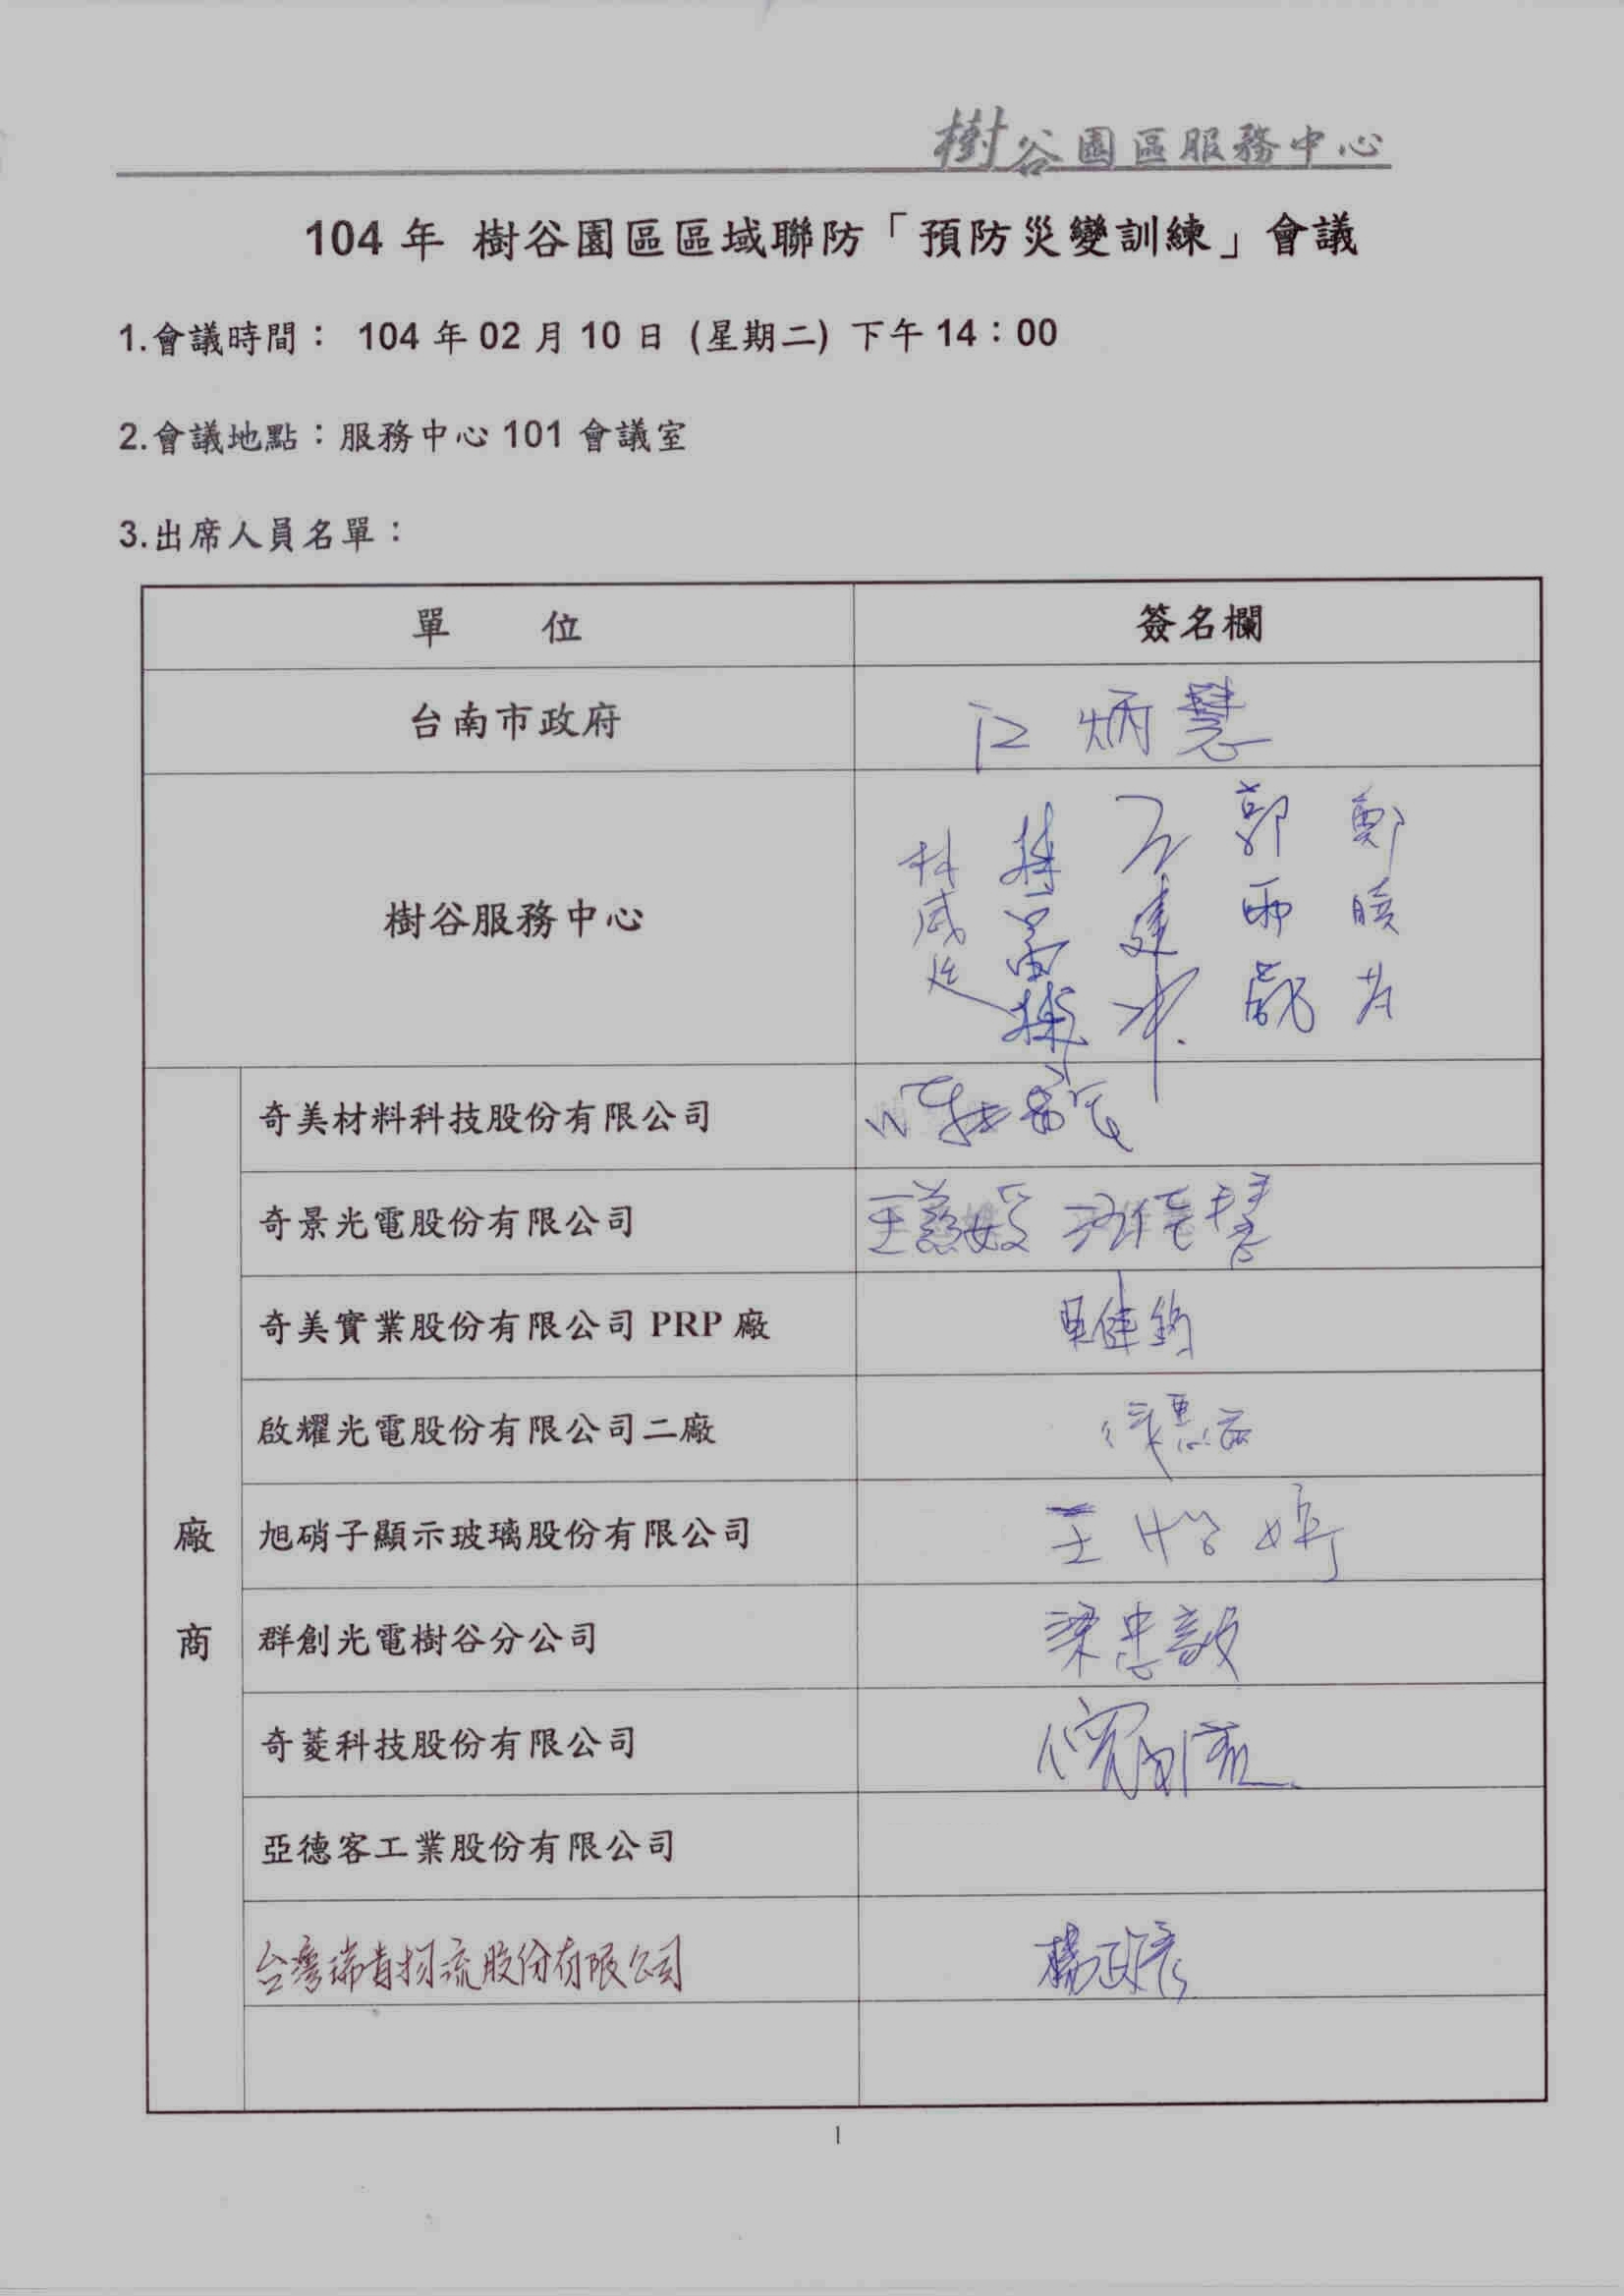 樹谷園區服務中心
104 年 樹谷園區區域聯防「預防災變訓練」會議
1.會議時間： 104 年 02 月 10 日 (星期二) 下午 14：00
2.會議地點：服務中心 101 會議室
3.出席人員名單：
單 位 簽名欄
台南市政府 江炳慧
樹谷服務中心
郭雨
鄭
廠商
奇美材料科技股份有限公司
奇景光電股份有限公司 王慈
奇美實業股份有限公司 PRP 廠
啟耀光電股份有限公司二廠
旭硝子顯示玻璃股份有限公司 王怡婷
群創光電樹谷分公司 梁忠毅
奇菱科技股份有限公司
亞德客工業股份有限公司
台灣瑞青物流股份有限公司 楊政彥
1